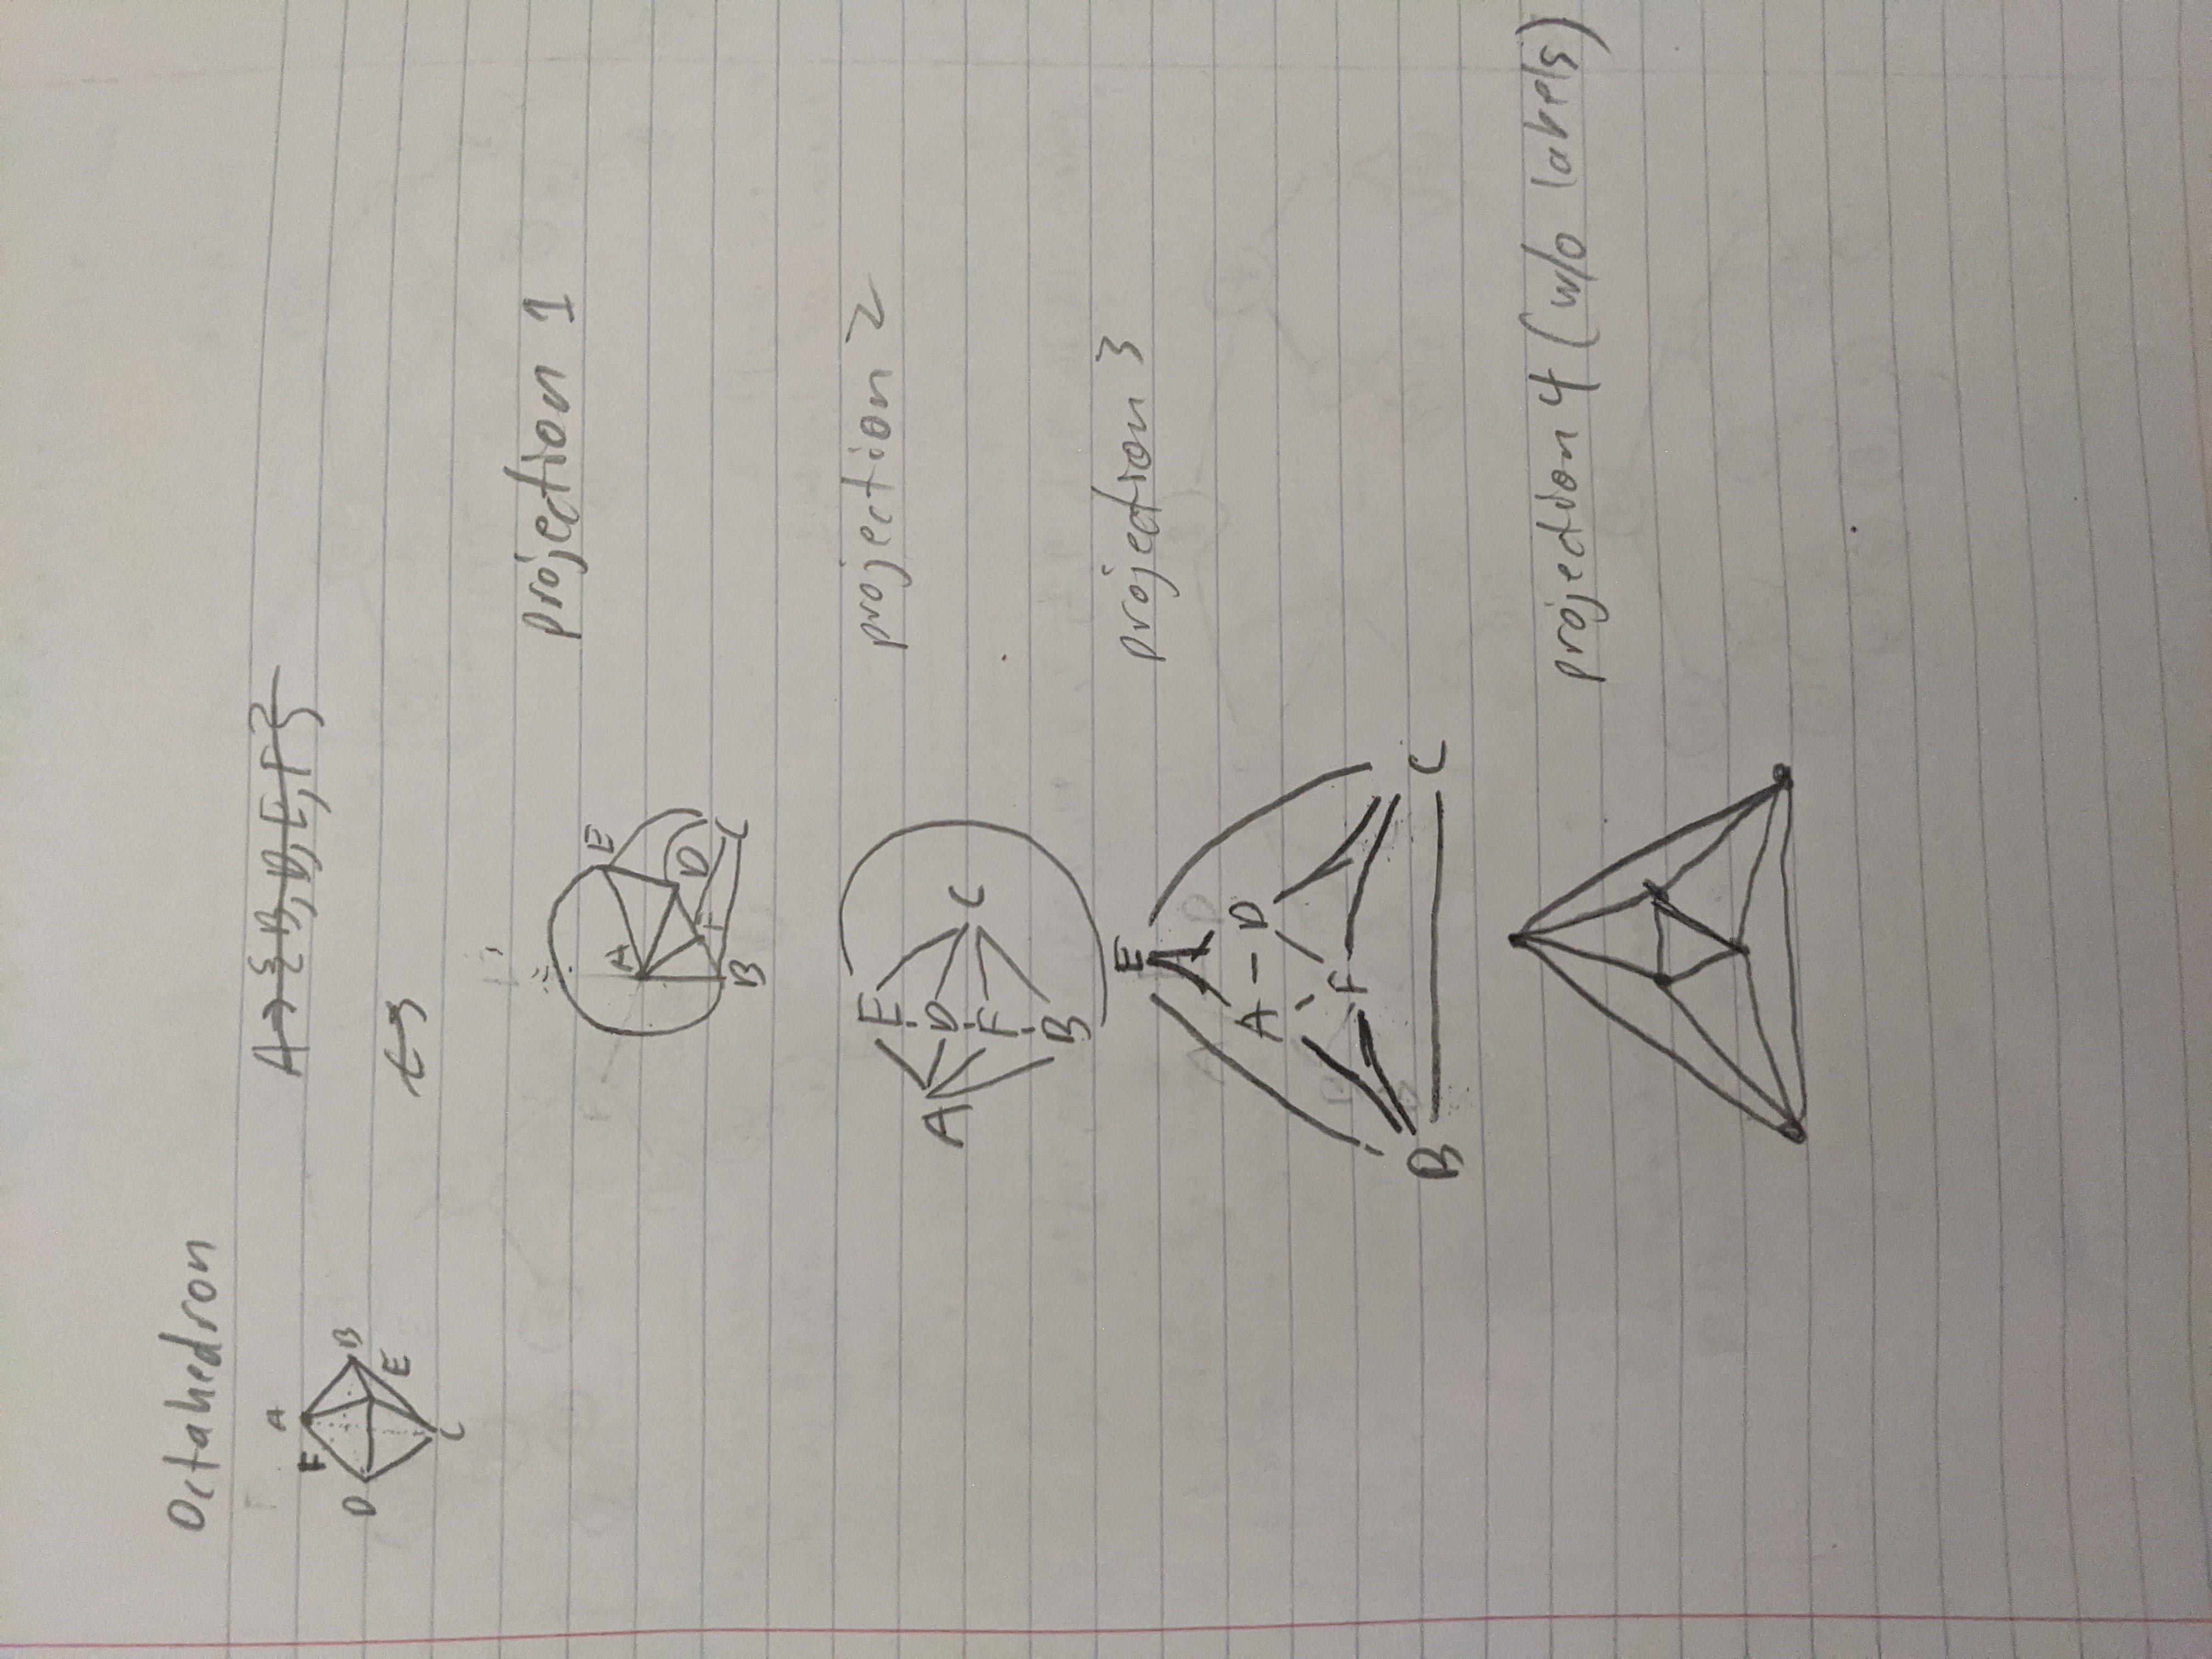 Octahedron
A
F
D
B
E
C
A → {B, D, E, F}
↔
projection 1
A
E
D
F
B
C
projection 2
E
A
D
C
F
B
projection 3
E
A - D
F
B
C
projection 4 (w/o labels)